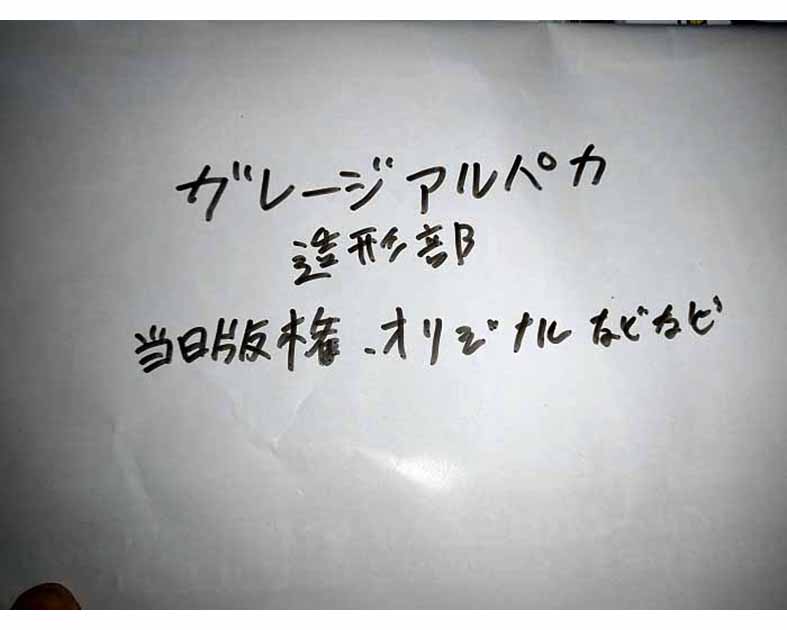 ガレージアルパカ
造形部
当日版権、オリジナルなどなど